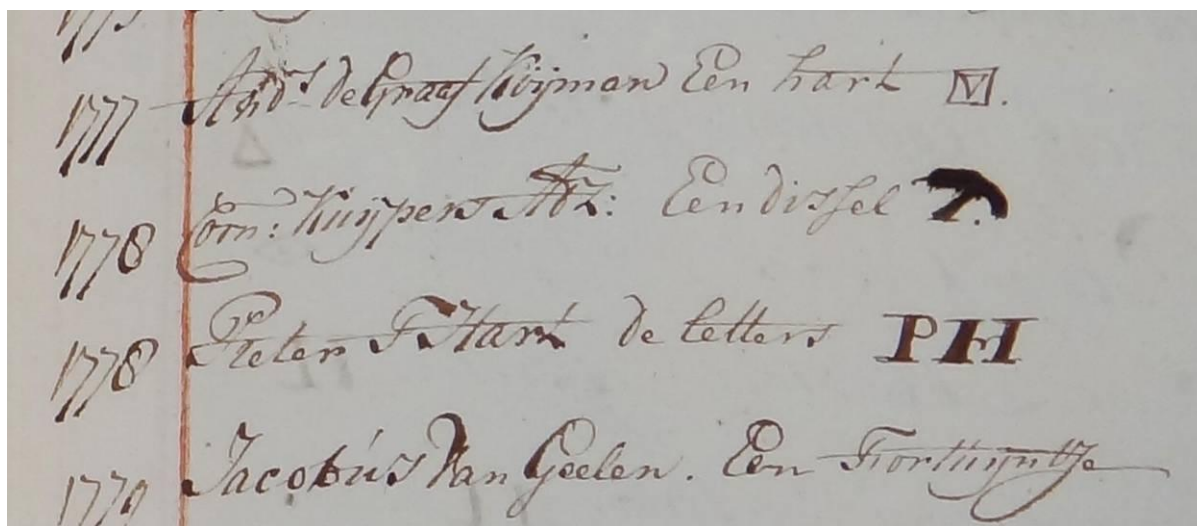 1777 And.s de Graaf Kuijman Een hart
1778 Corn: Kuijpers Adz: Een dissel
1778 Pieter T Hart de letters PH
1779 Jacobus Van Geelen. Een Fortuyntje